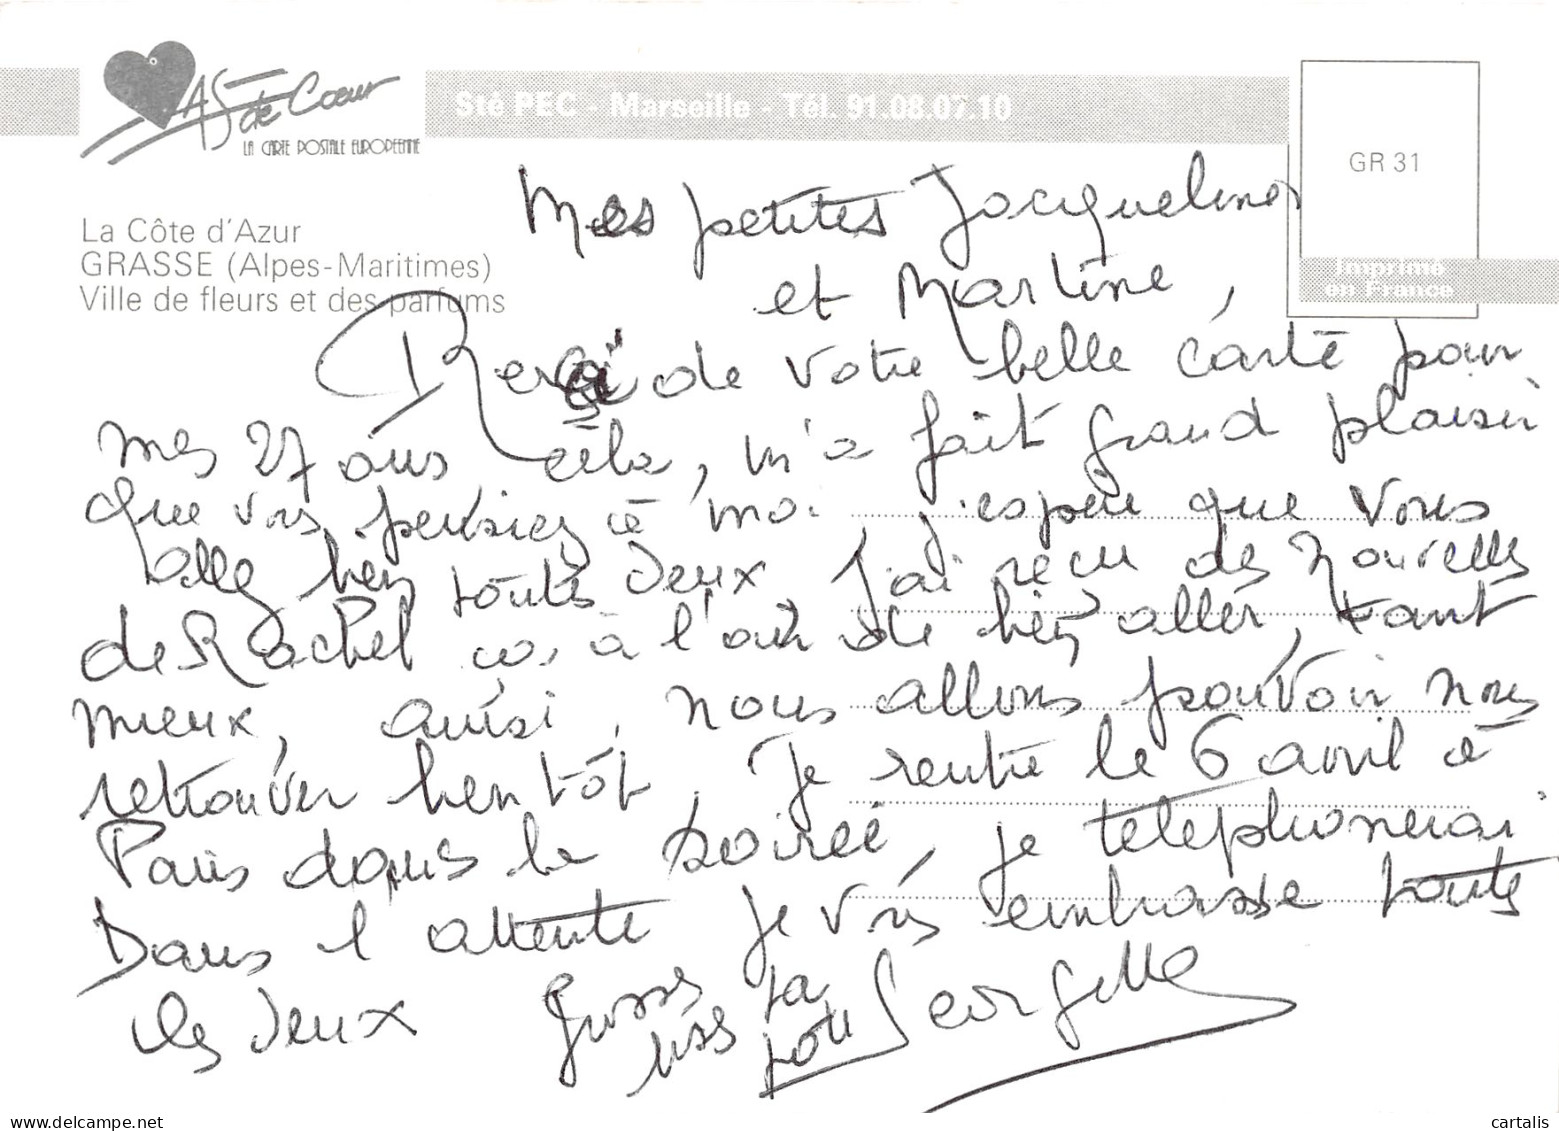 As de Cœur
LA CARTE POSTALE EUROPEENNE
Sté PEC - Marseille - Tél. 91.08.07.10
GR 31
Imprimé
en France
La Côte d'Azur
GRASSE (Alpes-Maritimes)
Ville de fleurs et des parfums
Mes petites Jacqueline
et Martine,
de votre belle carte pour
mes 27 ans cela, m'a fait grand plaisir
que vous pensiez à moi j'espère que vous
allez bien toutes deux, J'ai reçu des Nouvelles
de Rachel ça, à l'air de bien aller, tant
mieux, aussi, nous allons pouvoir nous
retrouver bientôt, Je rentre le 6 avril à
Paris dans la soirée, je téléphonerai
Dans l'attente je vous embrasse toutes
les deux Grosses
Georgette
cartalis